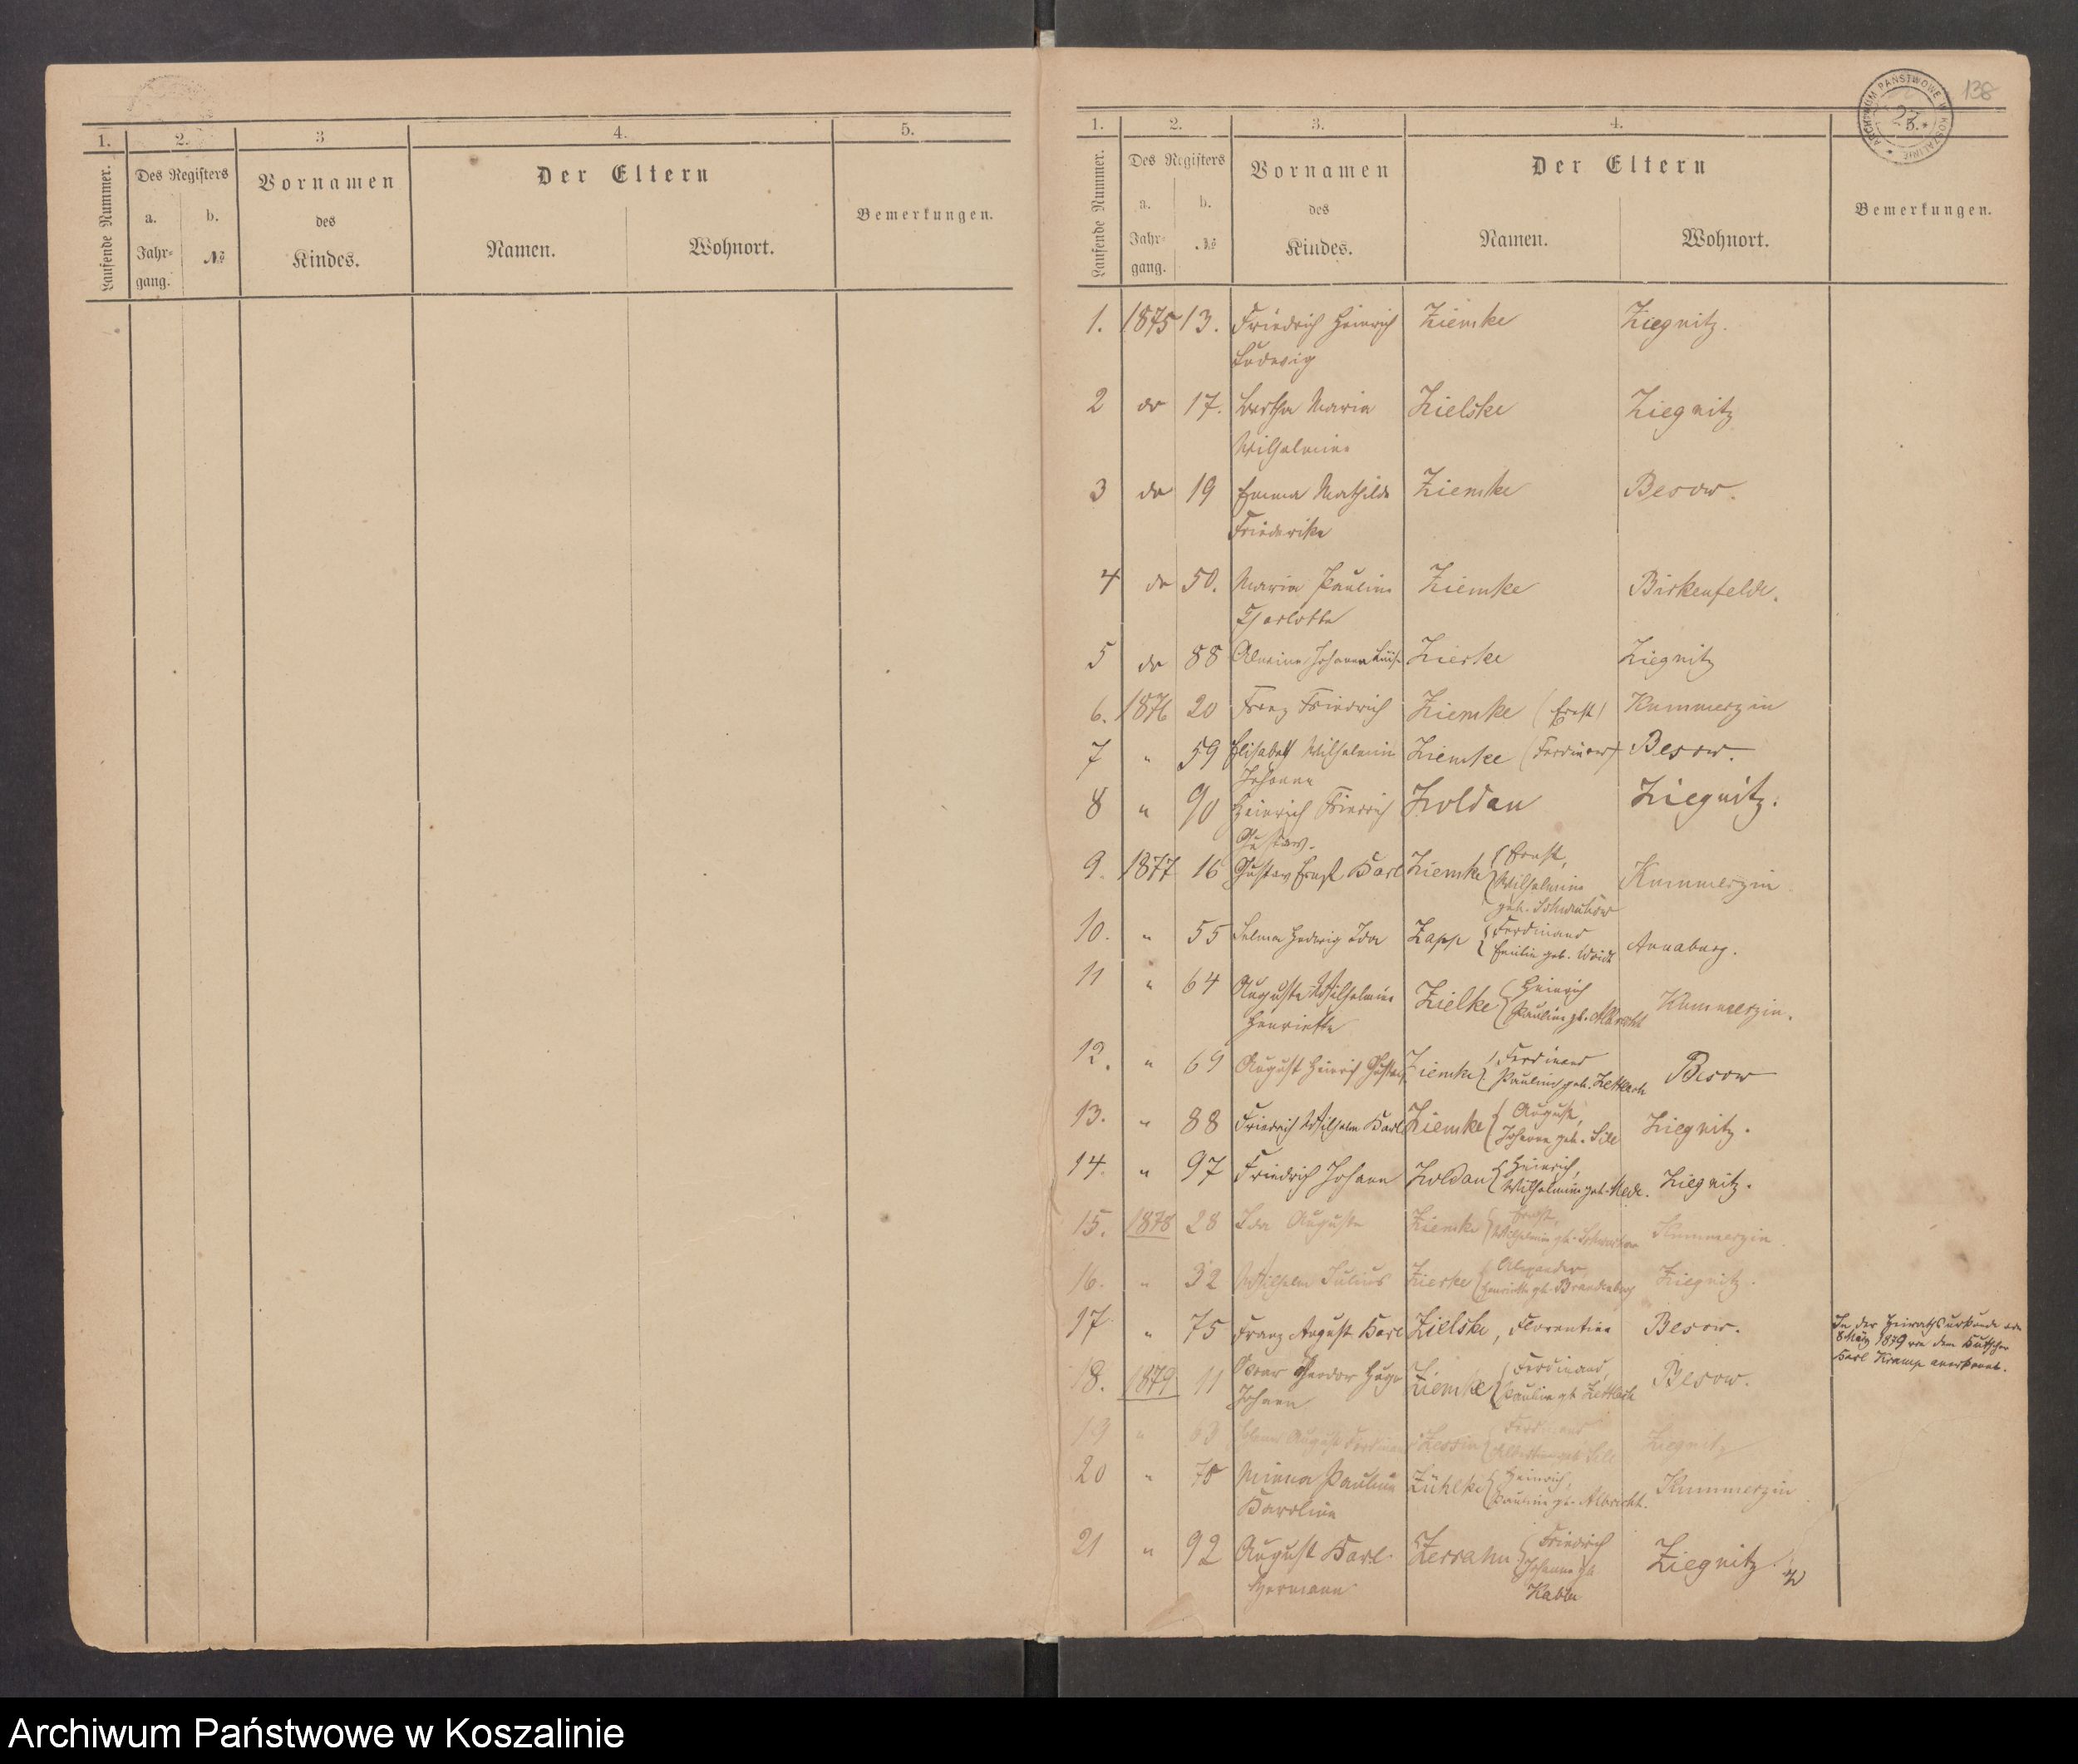 1. 2. 3 4. 5.
Laufende Nummer. Des Registers Vornamen Der Eltern Bemerkungen.
a. b. des
Jahr- № Kindes. Namen. Wohnort.
gang.
ARCHIWUM PAŃSTWOWE W KOSZALINIE
138
1. 2. 3. 4. 5.
Laufende Nummer. Des Registers Vornamen Der Eltern Bemerkungen.
a. b. des
Jahr- № Kindes. Namen. Wohnort.
gang.
1. 1875 13. Friedrich Heinrich Ziemke Ziegnitz.
Ludwig
2 do 17. Bertha Maria Zielske Ziegnitz
Wilhelmine
3 do 19 Emma Mathilde Ziemke Besow.
Friederike
4 do 50. Maria Pauline Ziemke Birkenfelde.
Charlotte
5 do 88 Alwine Johanna Luise Zierke Ziegnitz
6. 1876 20 Franz Friedrich Ziemke (Ernst) Kummerzin
7 " 59 Elisabeth Wilhelmine Ziemke (Ferdinand) Besow.
Johanna
8 " 90 Heinrich Friedrich Zoldan Ziegnitz.
Gustav.
9. 1877 16 Gustav Ernst Karl Ziemke { Ernst, Kummerzin
Wilhelmine
geb.
10. " 55 Selma Hedwig Ida Zapp { Ferdinand Annaberg.
Emilie geb.
11 " 64 Auguste Wilhelmine Zielke { Heinrich Kummerzin.
Henriette Pauline gb. Albrecht
12. " 69 August Heinrich Gustav Ziemke { Ferdinand Besow
Pauline geb. Zettlach
13. " 88 Friedrich Wilhelm Karl Ziemke { August, Ziegnitz.
Johanna geb. Sill
14. " 97 Friedrich Johann Zoldan { Heinrich, Ziegnitz.
Wilhelmine geb.
15. 1878 28 Ida Auguste Ziemke { Ernst, Kummerzin.
Wilhelmine gb.
16. " 32 Wilhelm Julius Zierke { Alexander, Ziegnitz.
Henriette gb. Brandenburg
17 " 75 Franz August Karl Zielske, Florentine Besow.
In der Heirathsurkunde vom
8 März 1879 von dem Kutscher
Karl Kramp anerkannt.
18. 1879 11 Oscar Theodor Hugo Ziemke { Ferdinand, Besow.
Johann Pauline gb Zettlach
19 " 63 August Ferdinand Zessin { Ferdinand Ziegnitz
geb Sill
20 " 75 Minna Pauline Zühlke { Heinrich, Kummerzin.
Karoline Pauline gb. Albrecht.
21 " 92 August Karl Zerrahn { Friedrich Ziegnitz
Hermann Johanna gb
Archiwum Państwowe w Koszalinie